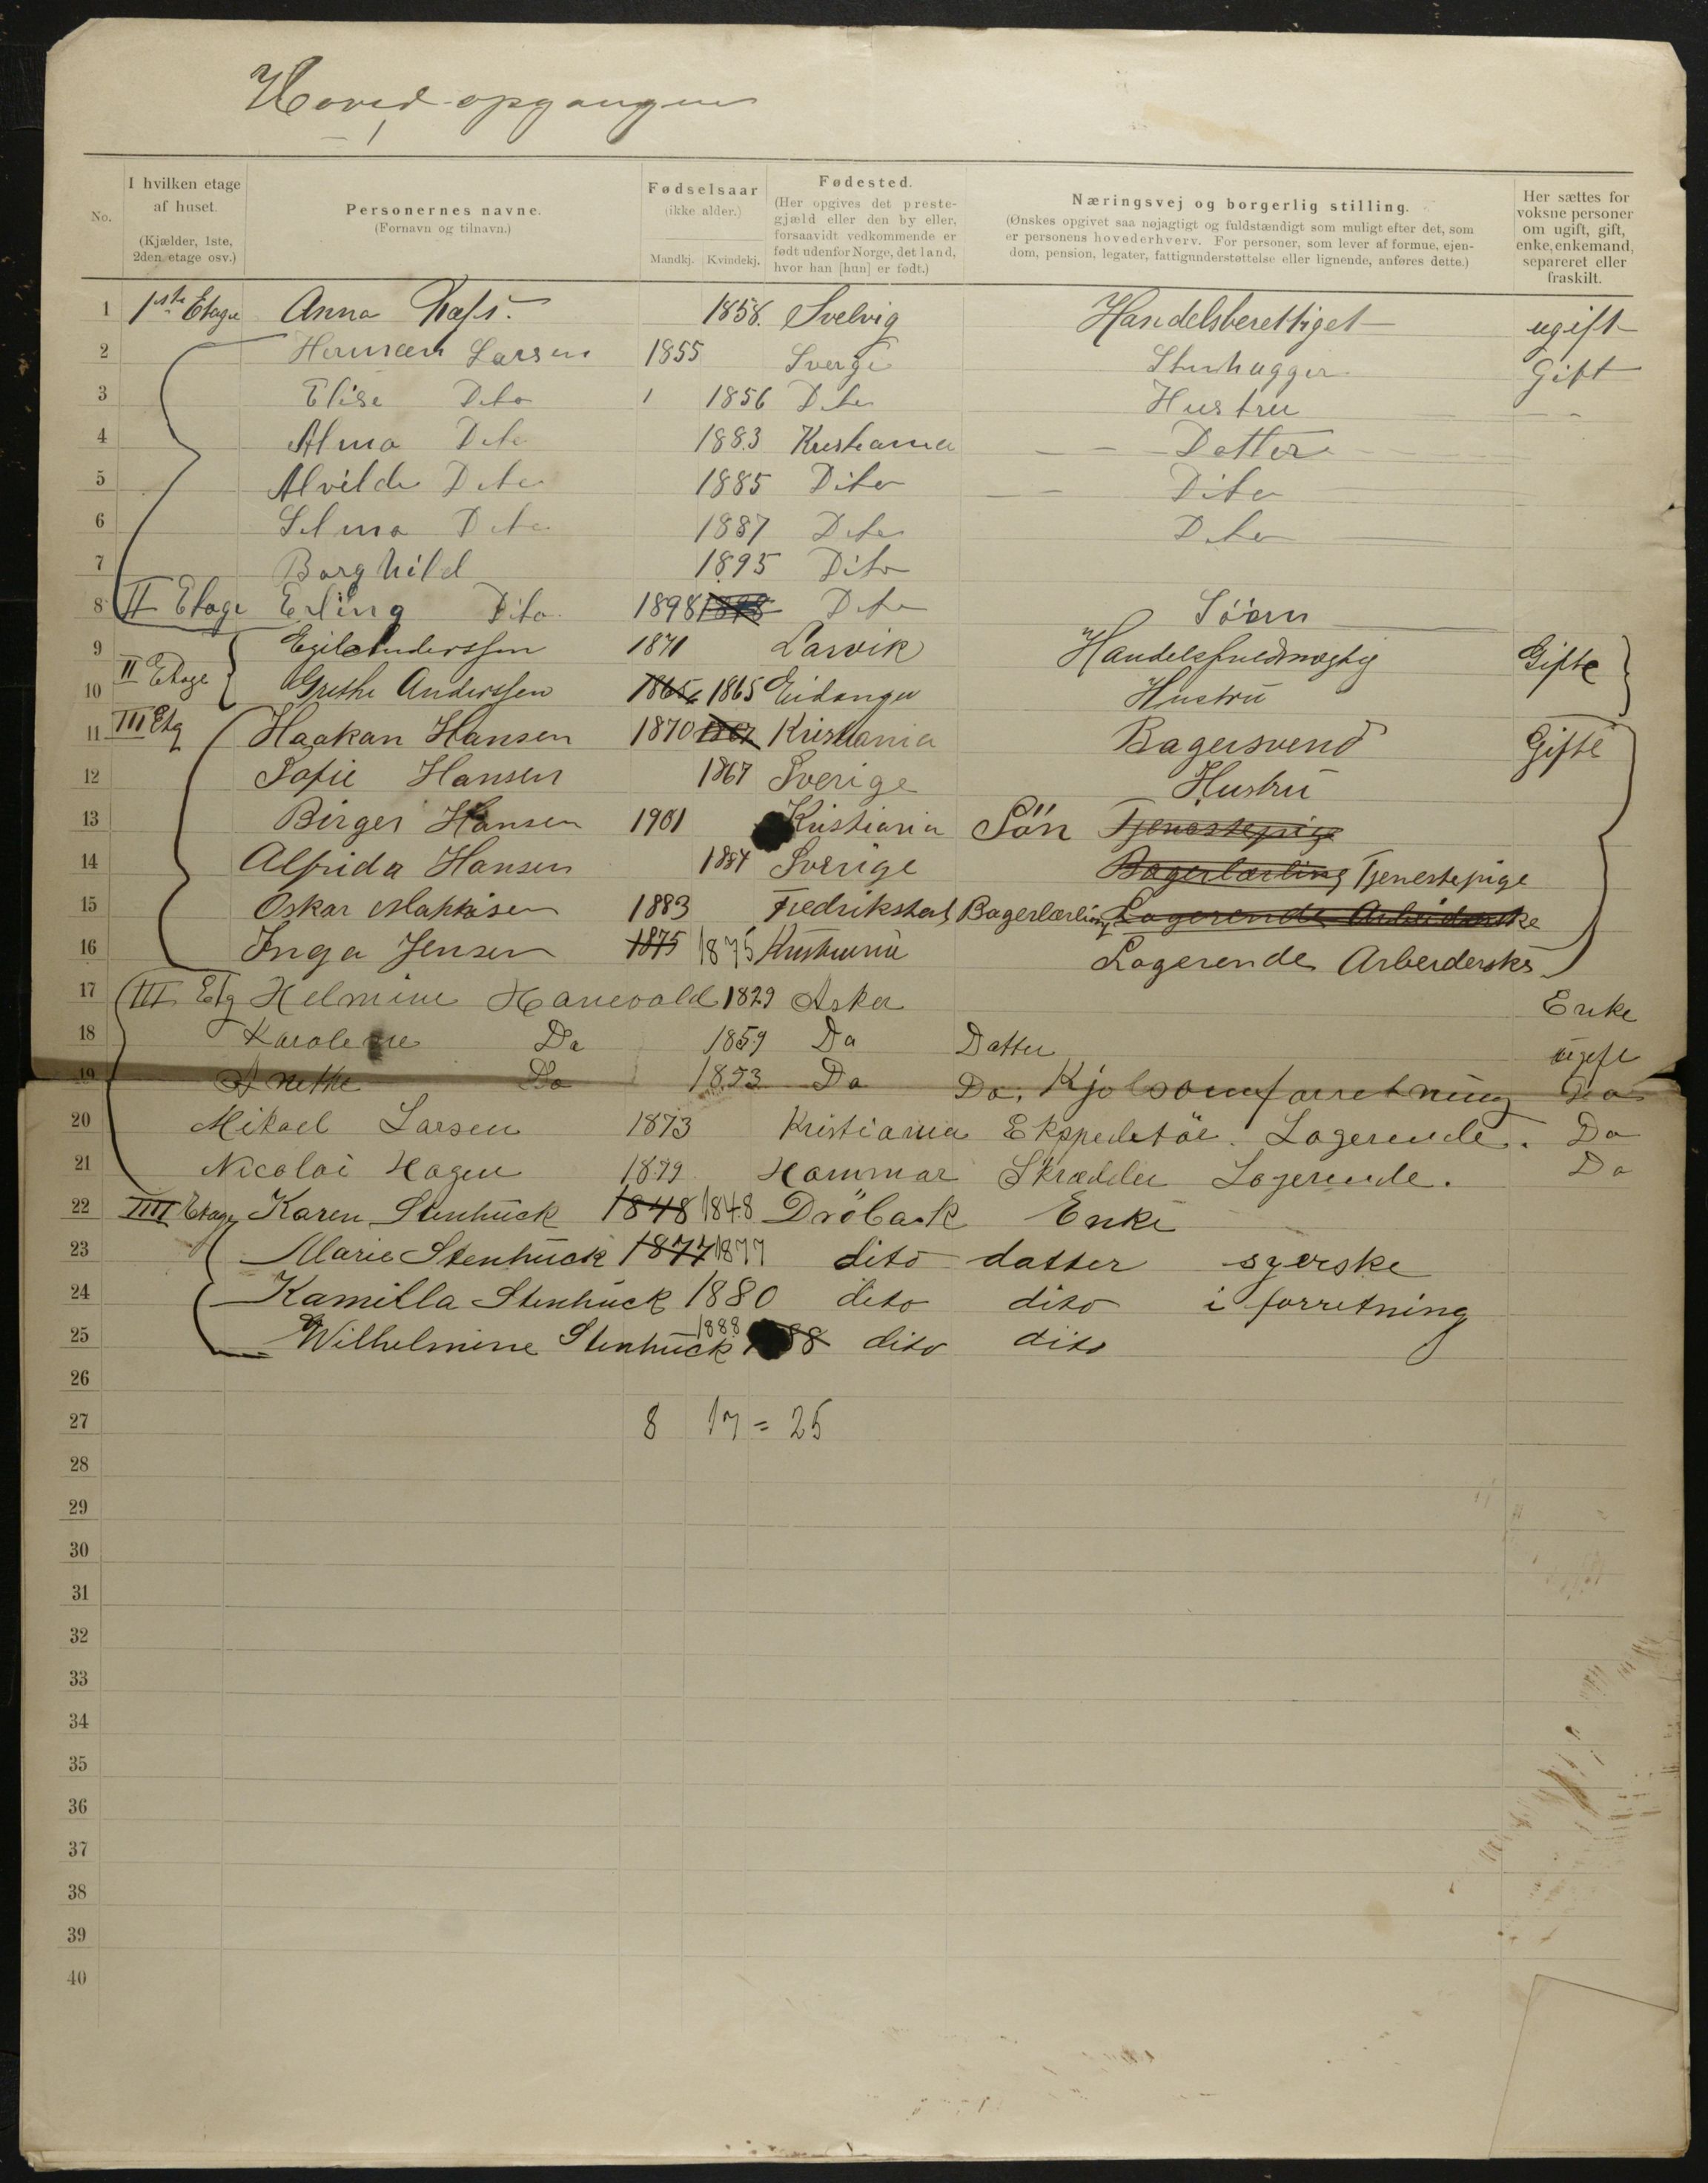 Hoved-opgangen
No.
I hvilken etage af huset.
(Kjælder, 1ste, 2den etage osv.)
Personernes navne.
(Fornavn og tilnavn.)
Fødselsaar
(ikke alder.)
Mandkj. Kvindekj.
Fødested.
(Her opgives det preste-
gjæld eller den by eller,
forsaavidt vedkommende er
født udenfor Norge, det land,
hvor han [hun] er født.)
Næringsvej og borgerlig stilling.
(Ønskes opgivet saa nøjagtigt og fuldstændigt som muligt efter det, som
er personens hovederhverv. For personer, som lever af formue, ejen-
dom, pension, legater, fattigunderstøttelse eller lignende, anføres dette.)
Her sættes for
voksne personer
om ugift, gift,
enke, enkemand,
separeret eller
fraskilt.
1 1ste Etage Anna 1858. Svelvig Handelsberettiget ugift
2 Herman Larsen 1855 Sverge Stenhugger Gift
3 Elise Dito 1856 Dito Hustru
4 Alma Dito 1883 Kristiania Datter
5 Alvilde Dito 1885 Dito Dito
6 Selma Dito 1887 Dito Dito
7 Borghild 1895 Dito
8 II Etage Erling Dito 1898 1898 Dito Söøn
9 Egil Anderssen 1871 Larvik Handelsfuldmægtig Gifte
10 II Etage Grethe Anderssen 1865 1865 Eidanger Hustru
11 III Etg Haakan Hansen 1870 1867 Kristiania Bagersvend Gifte
12 Sofie Hansen 1867 Sverige Hustru
13 Birger Hansen 1901 Kristiania Sön Tjenestepige
14 Alfrida Hansen 1884 Sverige Bagerlærling Tjenestepige
15 Oskar Mathisen 1883 Fredrikstad Bagerlærling Logerende Arbeiderske
16 Inga Jensen 1875 1875 Kristiania Logerende Arbeiderske
17 III Etg Helmine Hanevold 1829 Asker Enke
18 Karoline Do 1859 Do Datter ugift
19 Anette Do 1853 Do Do. Kjolsømforretning Do
20 Mikael Larsen 1873 Kristiania Ekspeditör. Logerende. Do
21 Nicolai Hagen 1879 Hammar Skrædder Logerende. Do
22 IIII Etage Karen Stenhuck 1848 1848 Dröbak Enke
23 Marie Stenhuck 1877 1877 dito datter syerske
24 Kamilla Stenhuck 1880 dito dito i forretning
25 Wilhelmine Stenhuck 1888 1888 dito dito
26
27 8 17 = 25
28
29
30
31
32
33
34
35
36
37
38
39
40